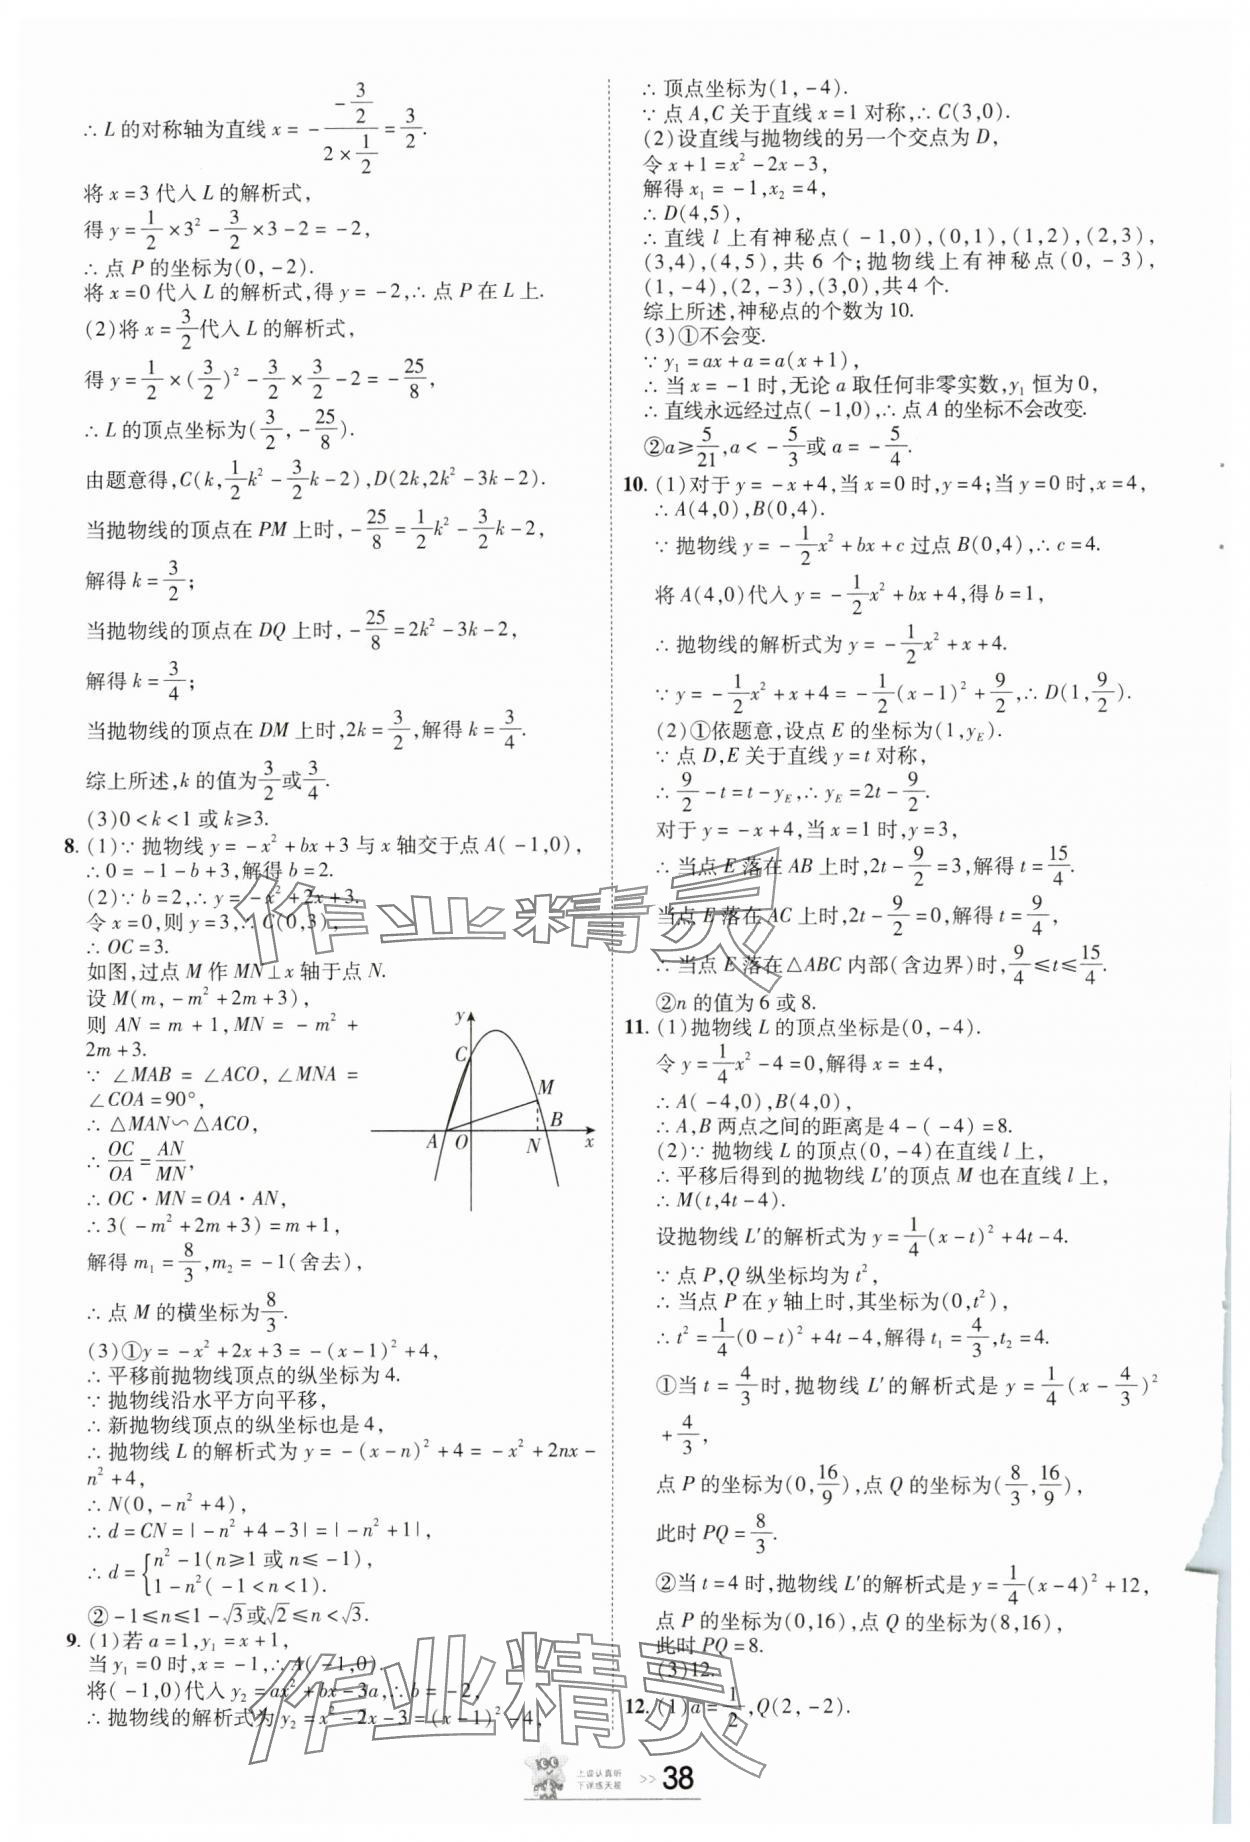 ∴ L 的对称轴为直线 x = -(-3/2)/(2×1/2) = 3/2.
将 x = 3 代入 L 的解析式,
得 y = 1/2 × 3² - 3/2 × 3 - 2 = -2,
∴ 点 P 的坐标为(0, -2).
将 x = 0 代入 L 的解析式,得 y = -2,∴ 点 P 在 L 上.
(2)将 x = 3/2 代入 L 的解析式,
得 y = 1/2 × (3/2)² - 3/2 × 3/2 - 2 = -25/8,
∴ L 的顶点坐标为(3/2, -25/8).
由题意得,C(k, 1/2k² - 3/2k - 2),D(2k, 2k² - 3k - 2).
当抛物线的顶点在 PM 上时, -25/8 = 1/2k² - 3/2k - 2,
解得 k = 3/2;
当抛物线的顶点在 DQ 上时, -25/8 = 2k² - 3k - 2,
解得 k = 3/4;
当抛物线的顶点在 DM 上时,2k = 3/2,解得 k = 3/4.
综上所述,k 的值为 3/2 或 3/4.
(3)0 < k < 1 或 k ≥ 3.
8. (1)∵ 抛物线 y = -x² + bx + 3 与 x 轴交于点 A( -1,0),
∴ 0 = -1 - b + 3,解得 b = 2.
(2)∵ b = 2,∴ y = -x² + 2x + 3.
令 x = 0,则 y = 3,∴ C(0,3),
∴ OC = 3.
如图,过点 M 作 MN⊥x 轴于点 N.
设 M(m, -m² + 2m + 3),
则 AN = m + 1,MN = -m² +
2m + 3.
∵ ∠MAB = ∠ACO, ∠MNA =
∠COA = 90°,
∴ △MAN∽△ACO,
∴ OC/OA = AN/MN,
∴ OC · MN = OA · AN,
∴ 3( -m² + 2m + 3) = m + 1,
解得 m₁ = 8/3, m₂ = -1(舍去),
∴ 点 M 的横坐标为 8/3.
y
C
M
A O N B x
(3)①y = -x² + 2x + 3 = -(x - 1)² + 4,
∴ 平移前抛物线顶点的纵坐标为 4.
∵ 抛物线沿水平方向平移,
∴ 新抛物线顶点的纵坐标也是 4,
∴ 抛物线 L 的解析式为 y = -(x - n)² + 4 = -x² + 2nx -
n² + 4,
∴ N(0, -n² + 4),
∴ d = CN = | -n² + 4 - 3| = | -n² + 1|,
∴ d = { n² - 1(n≥1 或 n≤ -1),
1 - n²( -1 < n < 1).
② -1≤n≤1 - √3或√2≤n<√3.
9. (1)若 a = 1,y₁ = x + 1,
当 y₁ = 0 时,x = -1,∴ A( -1,0).
将( -1,0)代入 y₂ = ax² + bx - 3a,∴ b = -2,
∴ 抛物线的解析式为 y₂ = x² - 2x - 3 = (x - 1)² - 4,
∴ 顶点坐标为(1, -4).
∵ 点 A,C 关于直线 x = 1 对称,∴ C(3,0).
(2)设直线与抛物线的另一个交点为 D,
令 x + 1 = x² - 2x - 3,
解得 x₁ = -1,x₂ = 4,
∴ D(4,5),
∴ 直线 l 上有神秘点( -1,0),(0,1),(1,2),(2,3),
(3,4),(4,5),共 6 个;抛物线上有神秘点(0, -3),
(1, -4),(2, -3),(3,0),共 4 个.
综上所述,神秘点的个数为 10.
(3)①不会变.
∵ y₁ = ax + a = a(x + 1),
∴ 当 x = -1 时,无论 a 取任何非零实数,y₁ 恒为 0,
∴ 直线永远经过点( -1,0),∴ 点 A 的坐标不会改变.
②a≥5/21,a < -5/3 或 a = -5/4.
10. (1)对于 y = -x + 4,当 x = 0 时,y = 4;当 y = 0 时,x = 4,
∴ A(4,0),B(0,4).
∵ 抛物线 y = -1/2x² + bx + c 过点 B(0,4),∴ c = 4.
将 A(4,0)代入 y = -1/2x² + bx + 4,得 b = 1,
∴ 抛物线的解析式为 y = -1/2x² + x + 4.
∵ y = -1/2x² + x + 4 = -1/2(x - 1)² + 9/2,∴ D(1, 9/2).
(2)①依题意,设点 E 的坐标为(1,y_E).
∵ 点 D,E 关于直线 y = t 对称,
∴ 9/2 - t = t - y_E,∴ y_E = 2t - 9/2.
对于 y = -x + 4,当 x = 1 时,y = 3,
∴ 当点 E 落在 AB 上时,2t - 9/2 = 3,解得 t = 15/4.
当点 E 落在 AC 上时,2t - 9/2 = 0,解得 t = 9/4,
∴ 当点 E 落在△ABC 内部(含边界)时, 9/4≤t≤15/4.
②n 的值为 6 或 8.
11. (1)抛物线 L 的顶点坐标是(0, -4).
令 y = 1/4x² - 4 = 0,解得 x = ±4,
∴ A( -4,0),B(4,0),
∴ A,B 两点之间的距离是 4 - ( -4) = 8.
(2)∵ 抛物线 L 的顶点(0, -4)在直线 l 上,
∴ 平移后得到的抛物线 L′的顶点 M 也在直线 l 上,
∴ M(t,4t - 4).
设抛物线 L′的解析式为 y = 1/4(x - t)² + 4t - 4.
∵ 点 P,Q 纵坐标均为 t²,
∴ 当点 P 在 y 轴上时,其坐标为(0,t²),
∴ t² = 1/4(0 - t)² + 4t - 4,解得 t₁ = 4/3, t₂ = 4.
①当 t = 4/3 时,抛物线 L′的解析式是 y = 1/4(x - 4/3)²
+ 4/3,
点 P 的坐标为(0, 16/9),点 Q 的坐标为(8/3, 16/9),
此时 PQ = 8/3.
②当 t = 4 时,抛物线 L′的解析式是 y = 1/4(x - 4)² + 12,
点 P 的坐标为(0,16),点 Q 的坐标为(8,16),
此时 PQ = 8.
(3)12.
12. (1)a = 1/2,Q(2, -2).
作业精灵
作业精灵
上课认真听
下课练天超
>> 38